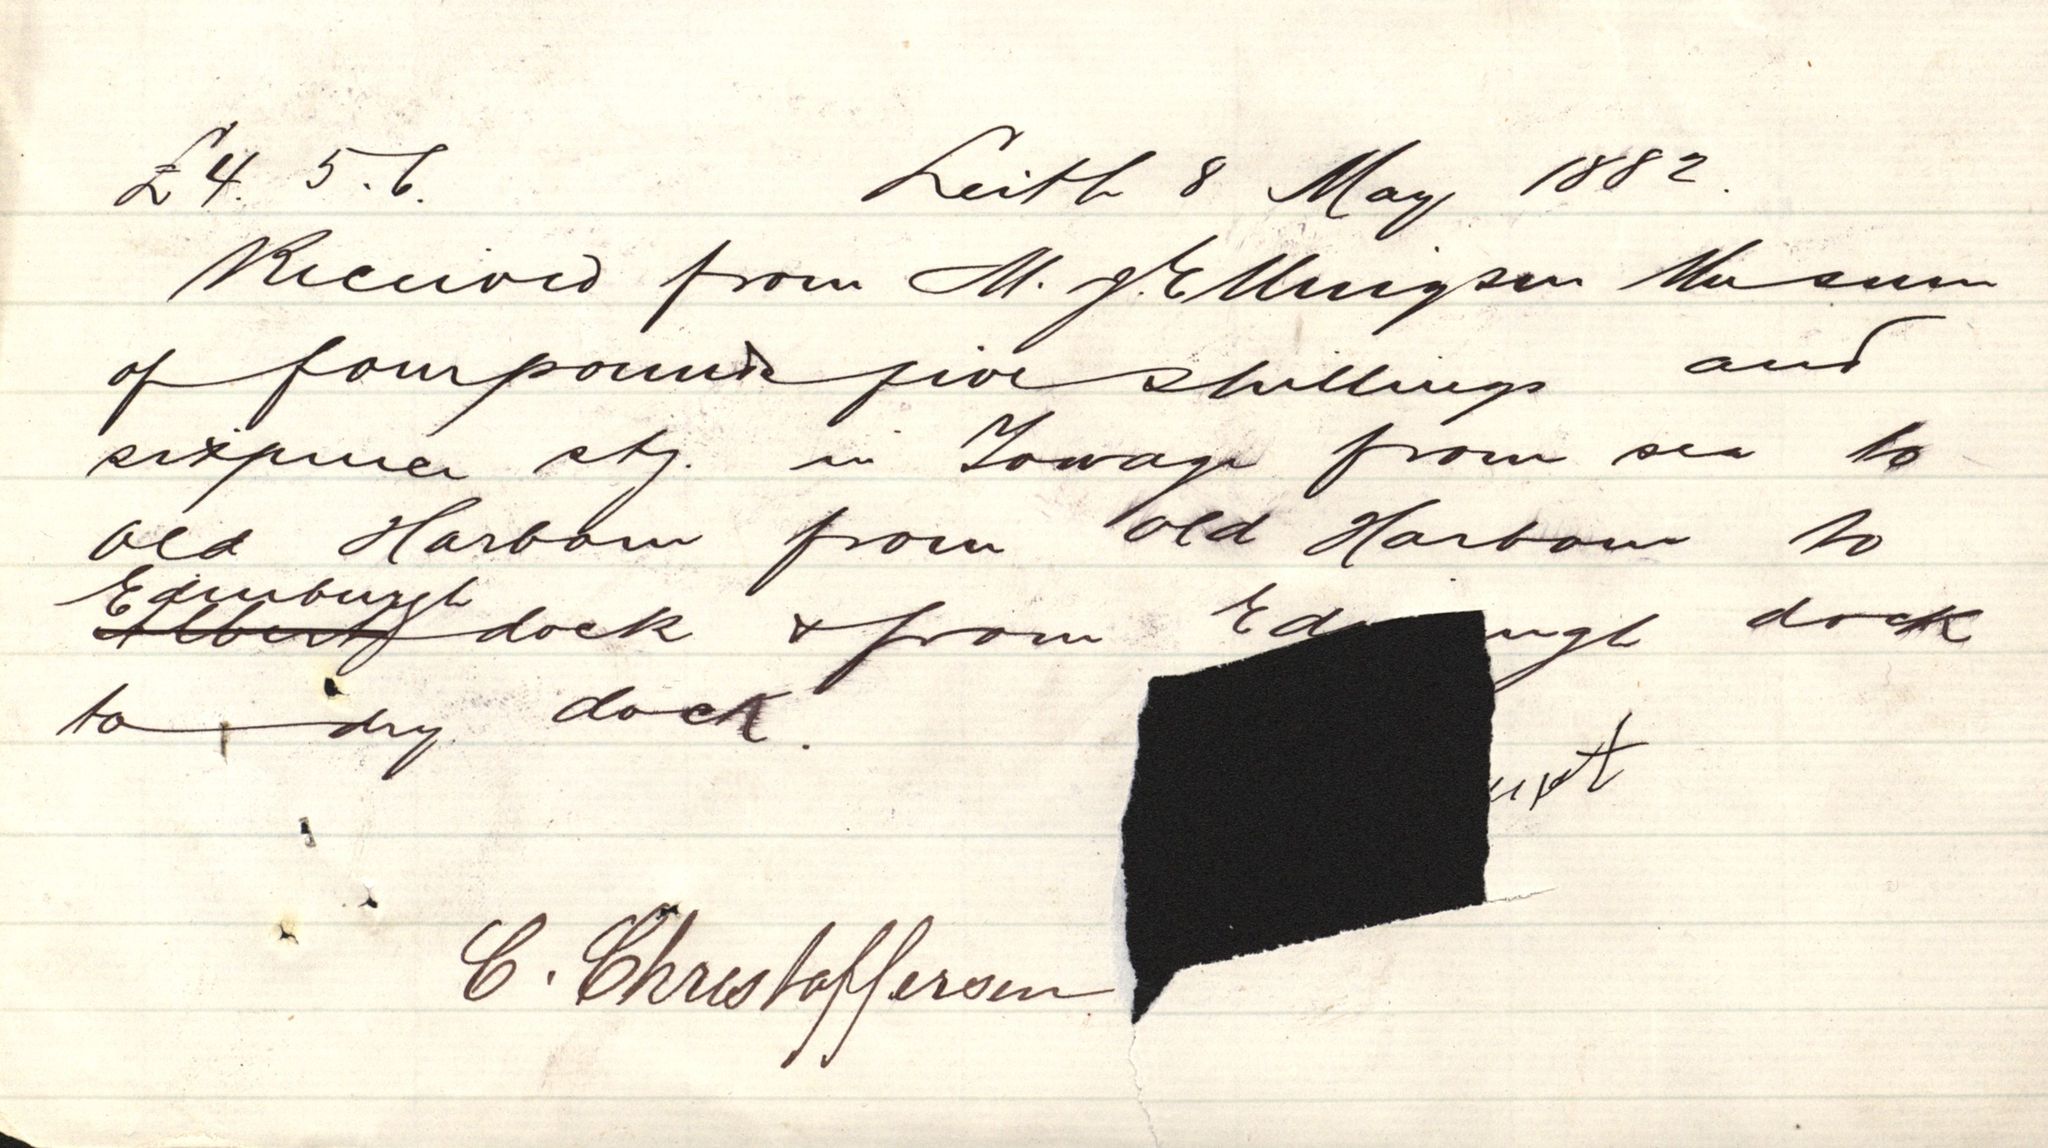 £4. 5.6. Leith 8 May 1882.
Received from M. J. Ellingsen the sum
of four pounds five shillings and
sixpence stg. in Towage from sea to
old Harbour from old Harbour to
Edinburgh
Albert dock & from Ed urgh dock
to dry dock.
C. Christoffersen